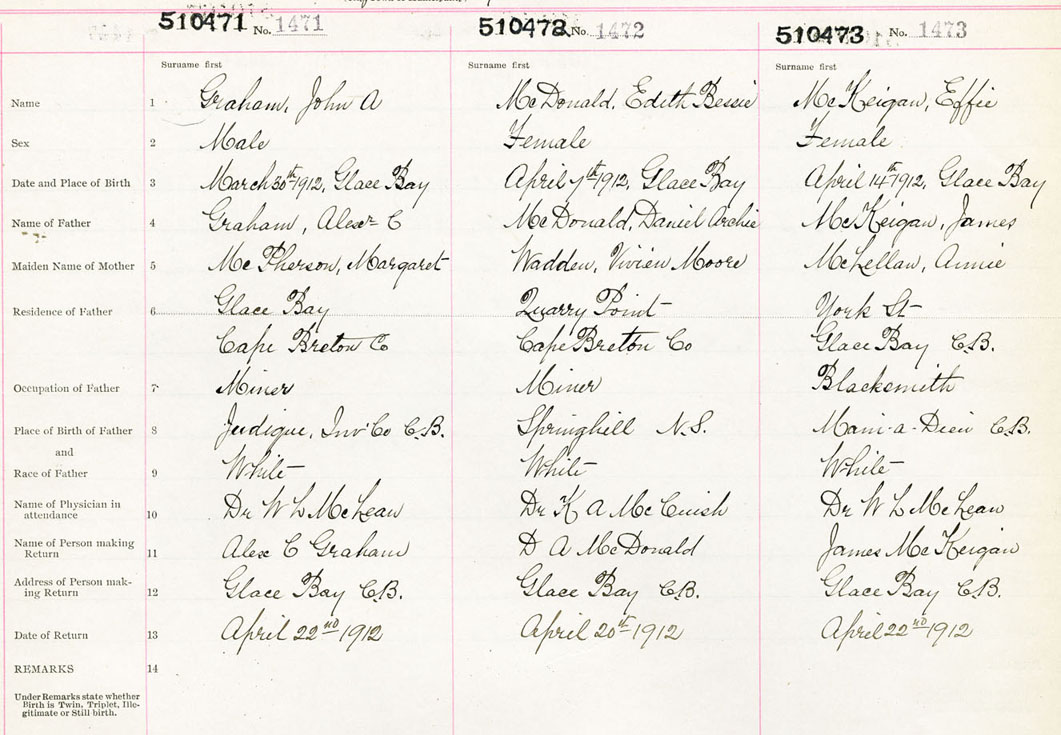 510471 No. 1471 510472 No. 1472 510473 No. 1473
Surname first Surname first Surname first
Name 1 Graham, John A McDonald, Edith Bessie McKeigan, Effie
Sex 2 Male Female Female
Date and Place of Birth 3 March 30th 1912, Glace Bay April 7th 1912, Glace Bay April 14th 1912, Glace Bay
Name of Father 4 Graham, Alexr C McDonald, Daniel Archie McKeigan, James
Maiden Name of Mother 5 McPherson, Margaret Wadden, Vivien Moore McLellan, Annie
Residence of Father 6 Glace Bay Quarry Point York St
Cape Breton Co Cape Breton Co Glace Bay C.B.
Occupation of Father 7 Miner Miner Blacksmith
Place of Birth of Father 8 Judique, Inv Co C.B. Springhill N.S. Main-a-Dieu C.B.
and
Race of Father 9 White White White
Name of Physician in
attendance 10 Dr W L McLean Dr K A McCuish Dr W L McLean
Name of Person making
Return 11 Alex C Graham D A McDonald James McKeigan
Address of Person mak-
ing Return 12 Glace Bay C.B. Glace Bay C.B. Glace Bay C.B.
Date of Return 13 April 22nd 1912 April 20th 1912 April 22nd 1912
REMARKS 14
Under Remarks state whether
Birth is Twin, Triplet, Ille-
gitimate or Still birth.